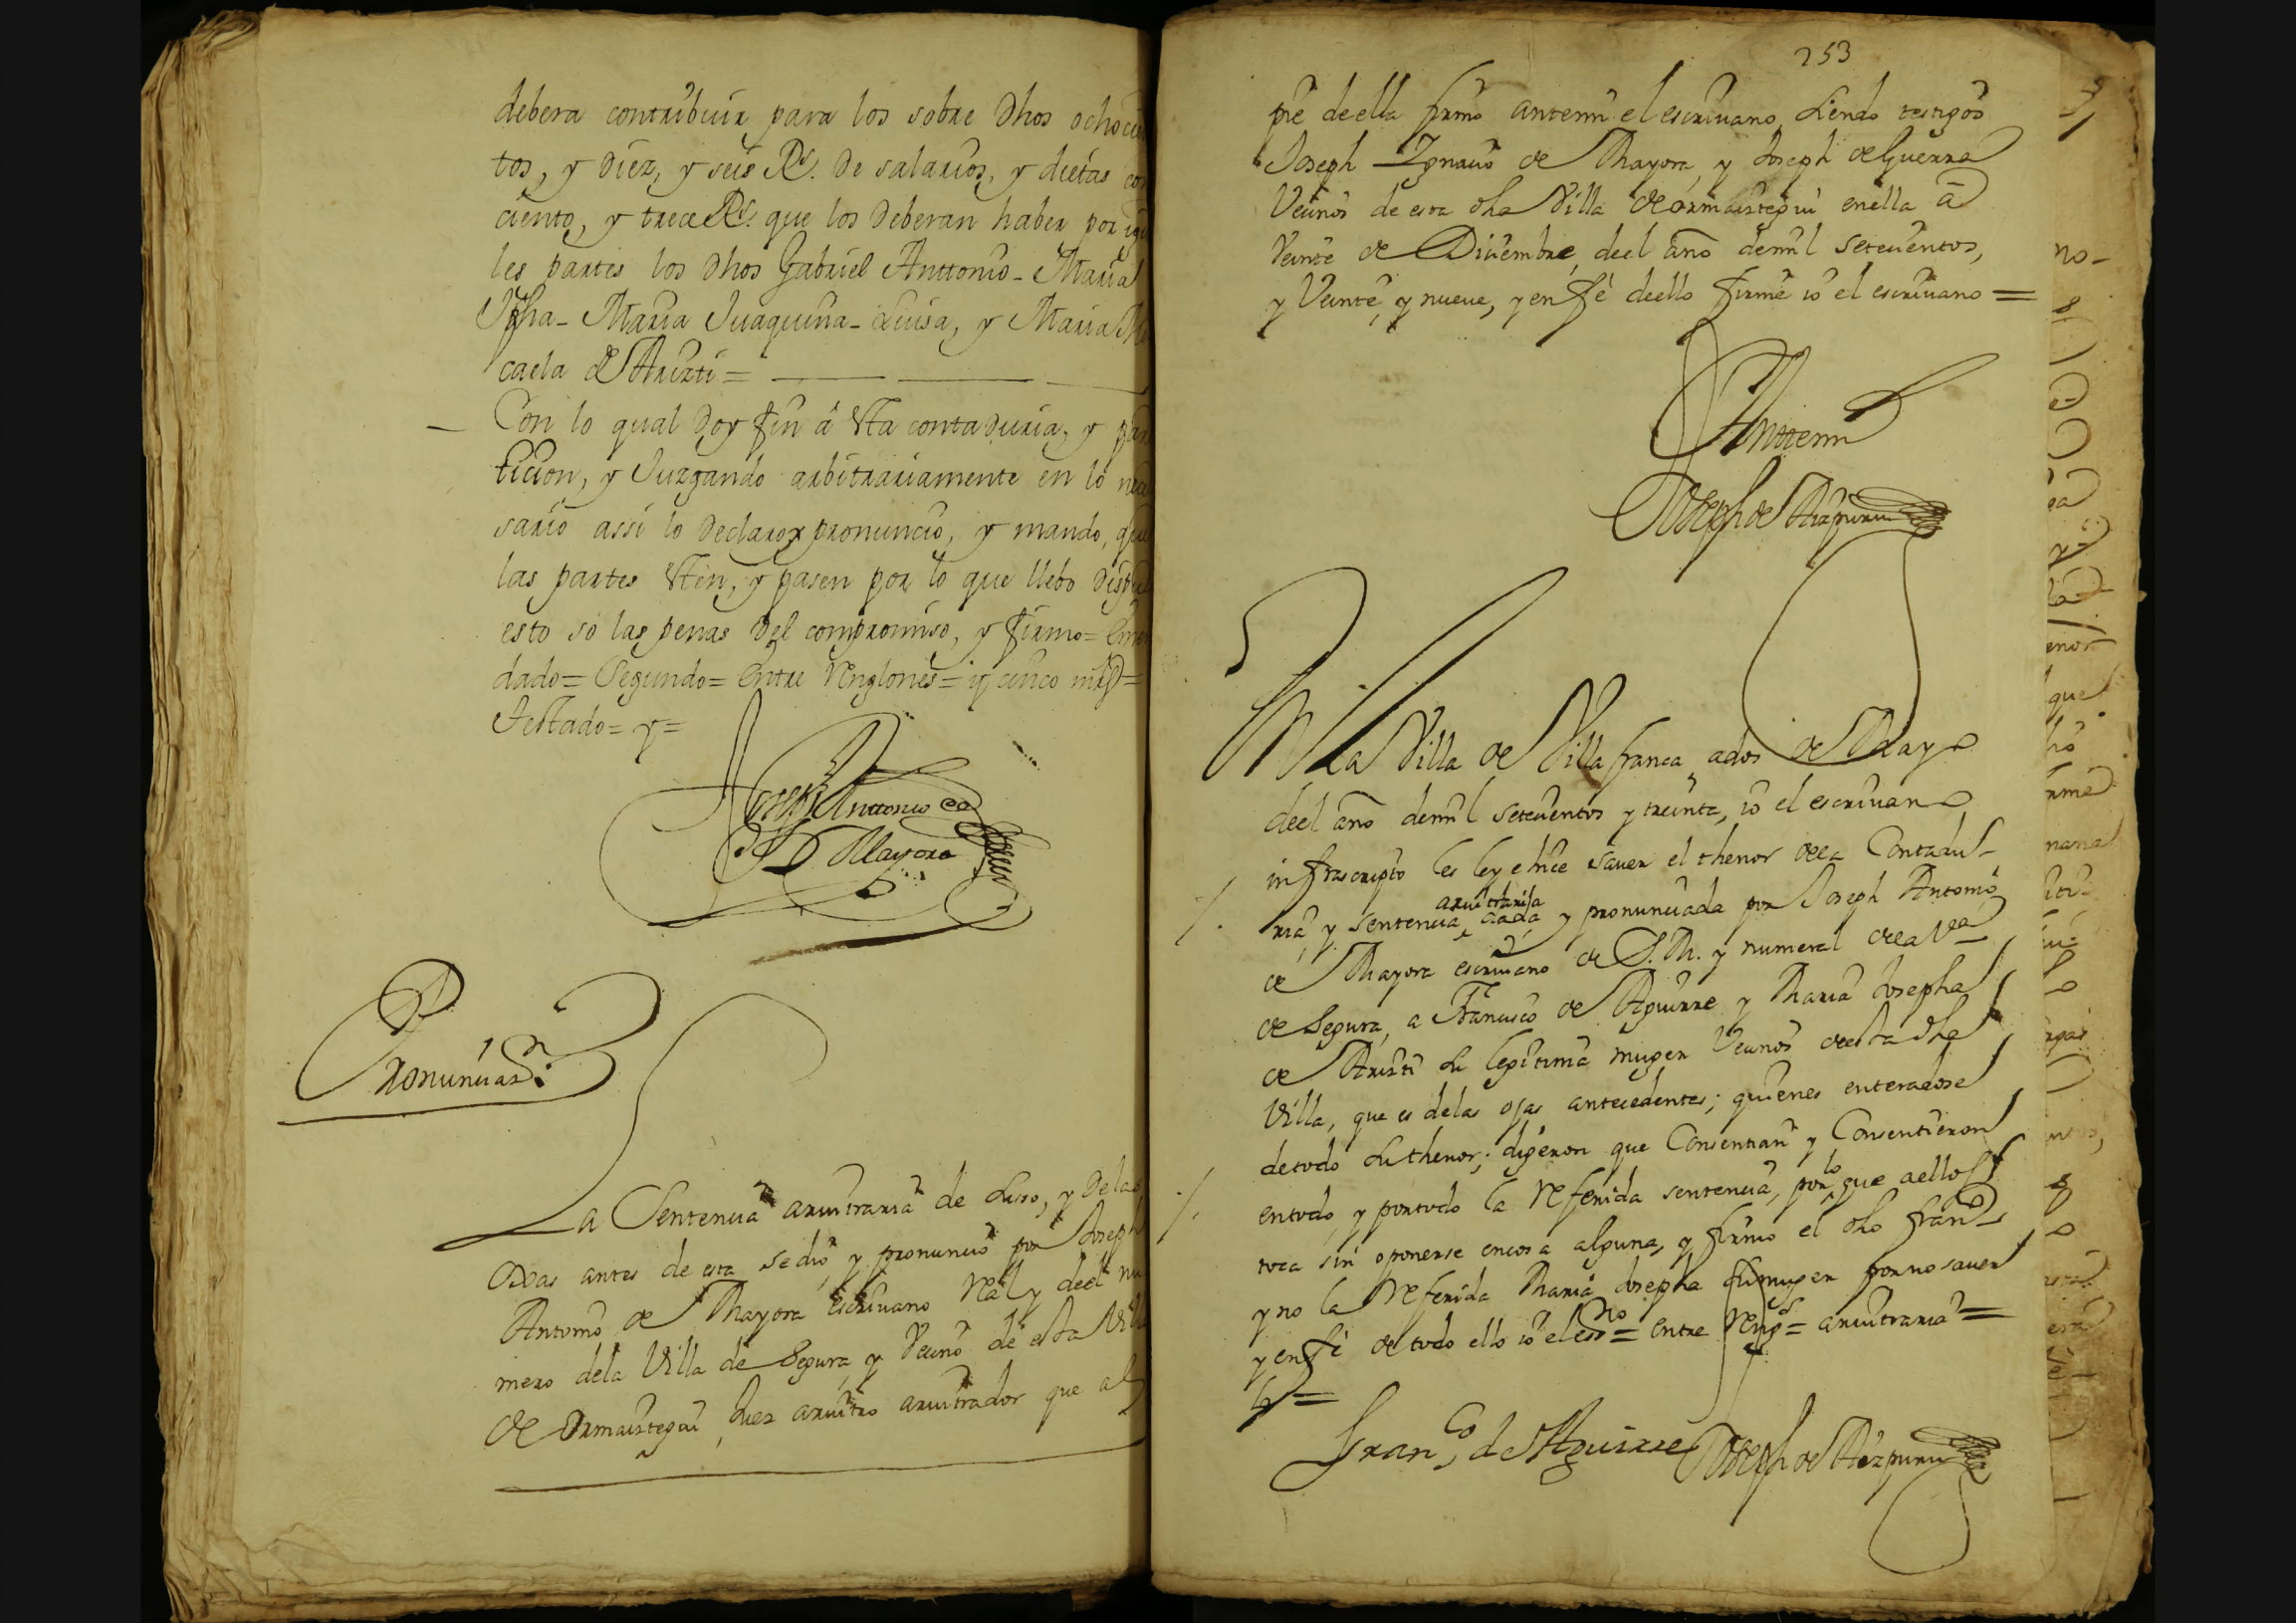 debera contribuir para los sobre dhos ochocie
tos, y diez, y seis Rs. de salarios, y dietas con
ciento, y trece Rs. que los deberan haber por igu
les partes los dhos Gabriel Anttonio - Maria
Jpha - Maria Juaquina - Luisa, y Maria Mi
caela de Arizti =
Con lo qual doy fin â esta contaduria, y par
ticion, y Juzgando arbitrariamente en lo nece
sario assi lo declaro y pronuncio, y mando, que
las partes esten, y pasen por lo que llebo dispu
esto so las penas del compromiso, y firmo = Emen
dado = Segundo = Entre Renglones = y cinco mrs =
Testado = y =
Joseph Anttonio
de Mayora
Pronunciazn.
La Sentencia arvitraria de suso, y de las
oxas antes de esta se dio, y pronuncio por Joseph
Antonio de Mayora escrivano Real y deel nu
mero dela Villa de Segura, y Vecino de esta Vill
de Ormaiztegui, Juez arvitro arvitrador que al
253
pie deella firmo antemi el escrivano, siendo testigos
Joseph Ygnacio de Mayora, y Joseph de Guerra
Vecinos de esta dha Villa de ormaiztegui enella â
Veinte de Diciembre, deel año demil setecientos,
y Veinte, y nueve, y en fè deello firmè io el escrivano =
Anttemi
Joseph de Aizpuru
En La Villa de Villafranca, a dos de Mayo
deel año demil setecientos y treinta, io el escrivano
infrascripto les ley e hice saver el thenor dela Contadu-
arvitraria
ria, y sentencia, dada, y pronunciada por Joseph Antonio
de Mayora escrivano de S. M. y numeral dela Va
de Segura, a Francisco de Aguirre y Maria Josepha
de Arizti su legitima muger Vecinos deesta dha
Villa, que es delas ojas antecedentes; quienes enterados
detodo su thenor; digeron que Consentian y Consintieron
entodo, y portodo la referida sentencia, por lo que aellos
toca sin oponerse encosa alguna, y firmo el dho franco
y no la referida Maria Josepha su muger por no saver
y en fè de todo ello io el essno = entre rengs = arvitraria =
lo =
Franco de Aguirre Joseph de Aizpuru